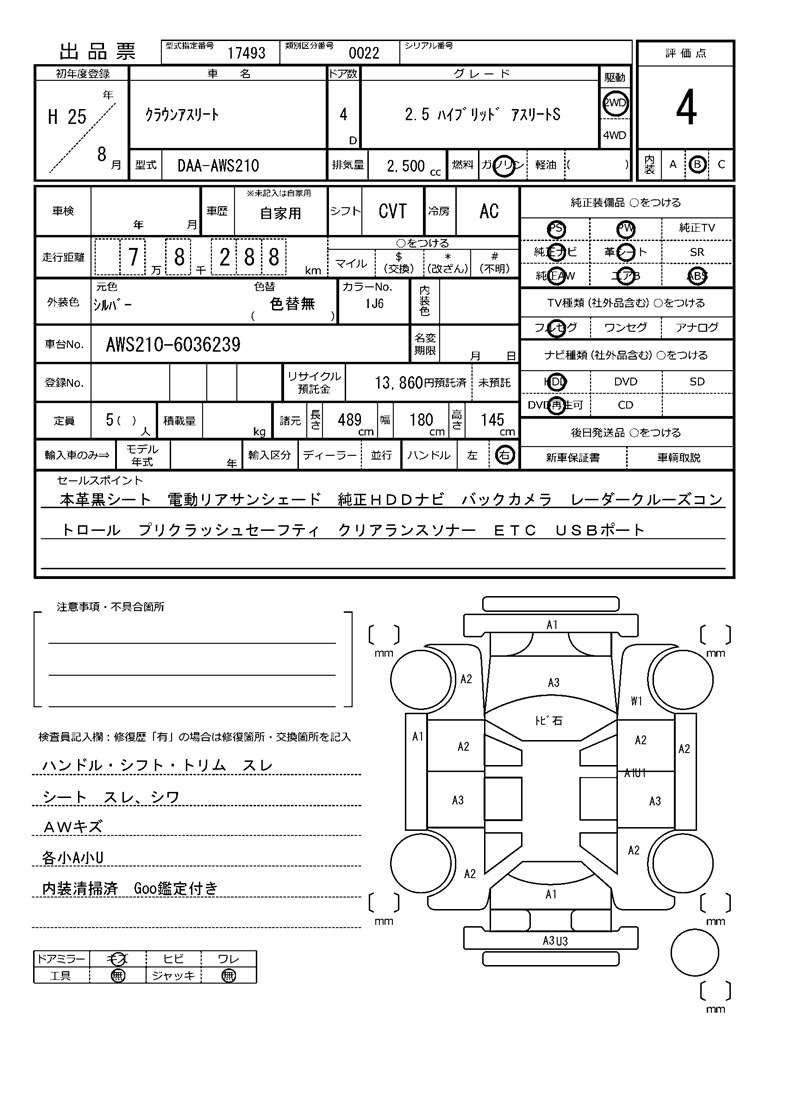 出品票
型式指定番号 17493 類別区分番号 0022 シリアル番号
評価点
4
内装 A B C
初年度登録 車名 ドア数 グレード 駆動
H 25 年 8 月 クラウンアスリート 4 D 2.5 ハイブリッド アスリートS 2WD
4WD
型式 DAA-AWS210 排気量 2,500 cc 燃料 ガソリン 軽油 ( )
車検 年 月 車歴 ※未記入は自家用 自家用 シフト CVT 冷房 AC
走行距離 7 万 8 千 2 8 8 km
○をつける
マイル $(交換) *(改ざん) #(不明)
外装色 元色 シルバー 色替 ( 色替無 ) カラーNo. 1J6 内装色
車台No. AWS210-6036239 名変期限 月 日
登録No. リサイクル預託金 13,860円預託済 未預託
定員 5( ) 人 積載量 kg 諸元 長さ 489 cm 幅 180 cm 高さ 145 cm
輸入車のみ⇒ モデル年式 年 輸入区分 ディーラー 並行 ハンドル 左 右
純正装備品 ○をつける
PS PW 純正TV
純正ナビ 革シート SR
純正AW エアB ABS
TV種類(社外品含む)○をつける
フルセグ ワンセグ アナログ
ナビ種類(社外品含む)○をつける
HDD DVD SD
DVD再生可 CD
後日発送品 ○をつける
新車保証書 車輌取説
セールスポイント
本革黒シート 電動リアサンシェード 純正HDDナビ バックカメラ レーダークルーズコン
トロール プリクラッシュセーフティ クリアランスソナー ETC USBポート
注意事項・不具合箇所
検査員記入欄：修復歴「有」の場合は修復箇所・交換箇所を記入
ハンドル・シフト・トリム スレ
シート スレ、シワ
AWキズ
各小A小U
内装清掃済 Goo鑑定付き
ドアミラー キズ ヒビ ワレ
工具 無 ジャッキ 無
A1
mm
mm
A2
A3
W1
トビ石
A1
A2
A2
A2
A1U1
A3
A3
A2
A2
A1
mm
mm
A3U3
mm